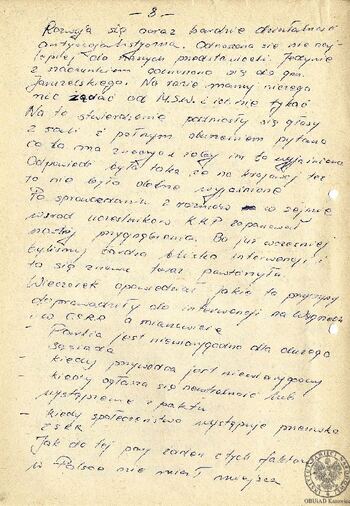 - 8 -
Rozwija się coraz bardziej działalność
antysocjalistyczna. Odnoszono się nie naj-
lepiej do naszych przedstawicieli. Jedynie
z szacunkiem odnoszono się do gen.
Jaruzelskiego. Na razie mamy niczego
nie żądać od M.S.W. i ich nie tykać
Na to stwierdzenie podniosły się głosy
z sali z pełnym oburzeniem pytano
co to ma znaczyć i żeby im to wyjaśniono
Odpowiedź była taka że na krajowej też
to nie było dobrze wyjaśnione
Po sprawozdaniu z rozmów w sejmie
wśród uczestników KKP zapanował
nastrój przygnębienia. Bo już wcześniej
byliśmy bardzo blisko interwencji i
to się znowu teraz powtarzyło
Wieczorek opowiedział jakie to przyczyny
doprowadziły do interwencji na Węgrzech
i w CSRS a mianowicie
- Partia jest niewiarygodna dla dużego
sąsiada
- kiedy przywódca jest niewiarygodny
- kiedy ogłasza się neutralność lub
wystąpienie z paktu
- kiedy społeczeństwo występuje przeciwko
ZSRR
Jak do tej pory żaden z tych faktów
w Polsce nie miał miejsca
OBUiAD Katowice